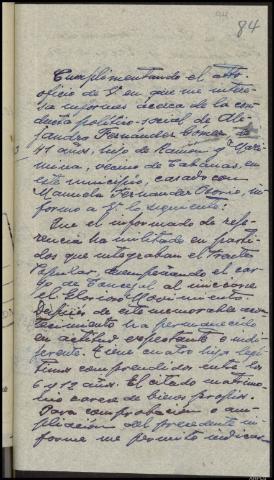 84
Cumplimentando el atto.
oficio de V. en que me intere-
sa informes acerca de la con-
ducta político-social de Ale-
jandro Fernández Gomez de
41 años, hijo de Ramón y Maxi-
mina, vecino de Cabañas, en
este municipio, casado con
Manuela Fernandez Osorio, in-
formo a V. lo siguiente:
Que el informado de refe-
rencia ha militado en parti-
dos que integraban el Frente
Popular, desempeñando el car-
go de Concejal al iniciarse
el Glorioso Movimiento.
Después de este memorable acon-
tecimiento ha permanecido
en actitud expectante o indi-
ferente. Tiene cuatro hijos legí-
timos comprendidos entre los
6 y 12 años. El citado matrimo-
nio carece de bienes propios.
Para comprobacion o am-
pliación del precedente in-
forme me permito indicar